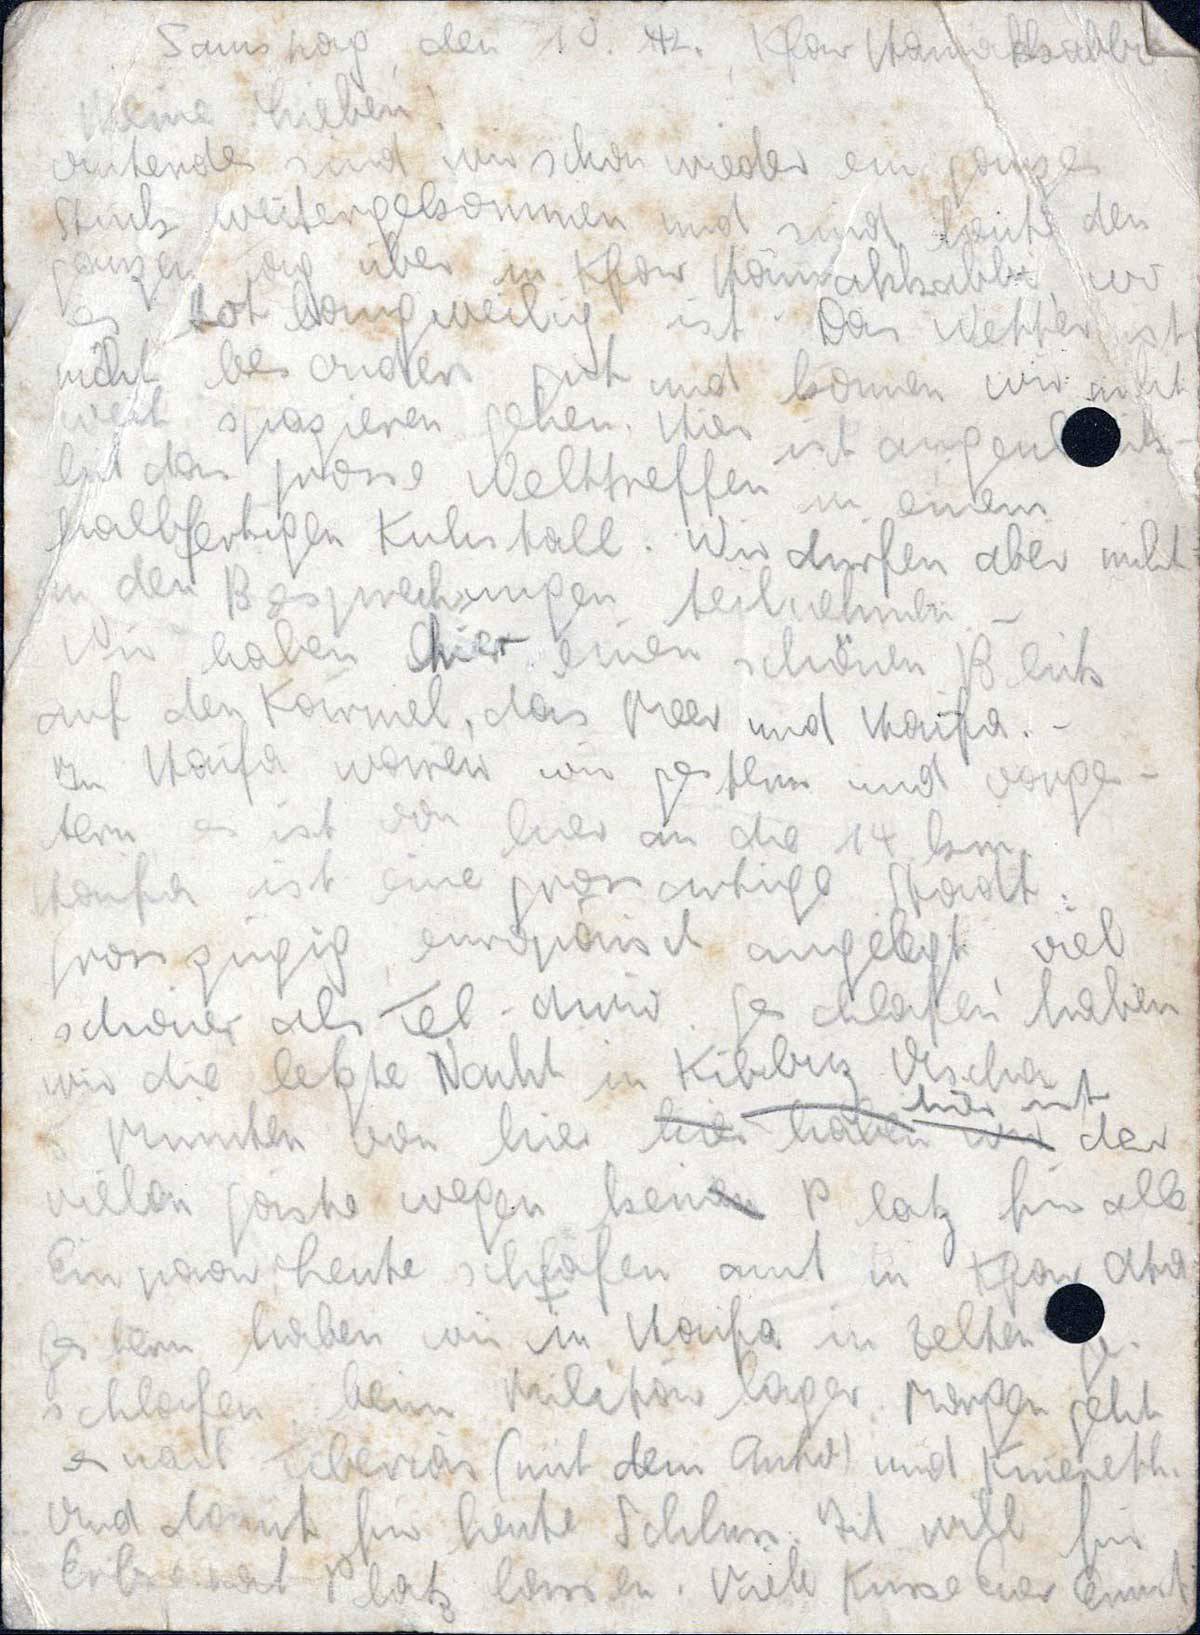 Samstag, den 10. 42. Kfar Hamakkabi
Meine Lieben!
sind wir schon wieder ein ganzes
Stück weitergekommen und sind heute den
ganzen Tag über in Kfar Hamakkabi, wo
es tot langweilig ist. Das Wetter ist
nicht besonders gut und können wir nicht
weit spazieren gehen. Hier ist augenblick-
lich das grosse Welttreffen in einem
halbfertigen Kuhstall. Wir dürfen aber nicht
an den Besprechungen teilnehmen. -
Wir haben hier einen schönen Blick
auf den Karmel, das Meer und Haifa. -
In Haifa waren wir gestern und vorges-
tern es ist von hier an die 14 km.
Haifa ist eine grossartige Stadt.
grosszügig, europäisch angelegt, viel
schöner als Tel-Awiw. Geschlafen haben
wir die letzte Nacht in Kibbuz Uscha
5 Minuten von hier hier haben wir hier ist der
vielen Gäste wegen kein Platz für alle
Ein paar heute schlafen auch in Kfar Ata
Gestern haben wir in Haifa in Zelten ge-
schlafen, beim Militärlager. Morgen geht
es nach Tiberias (mit dem Auto) und Kinereth.
Und damit für heute Schluss. Ich will für
noch Platz lassen. Viele Küsse Euer Ernst